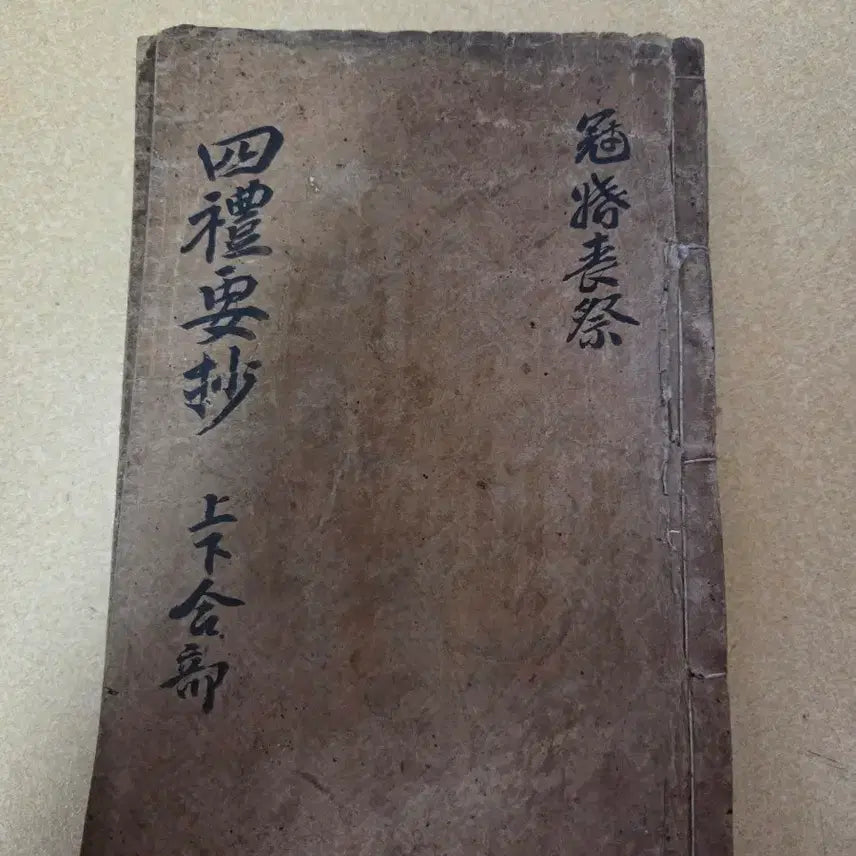 冠婚喪祭
四禮要抄 上下合部